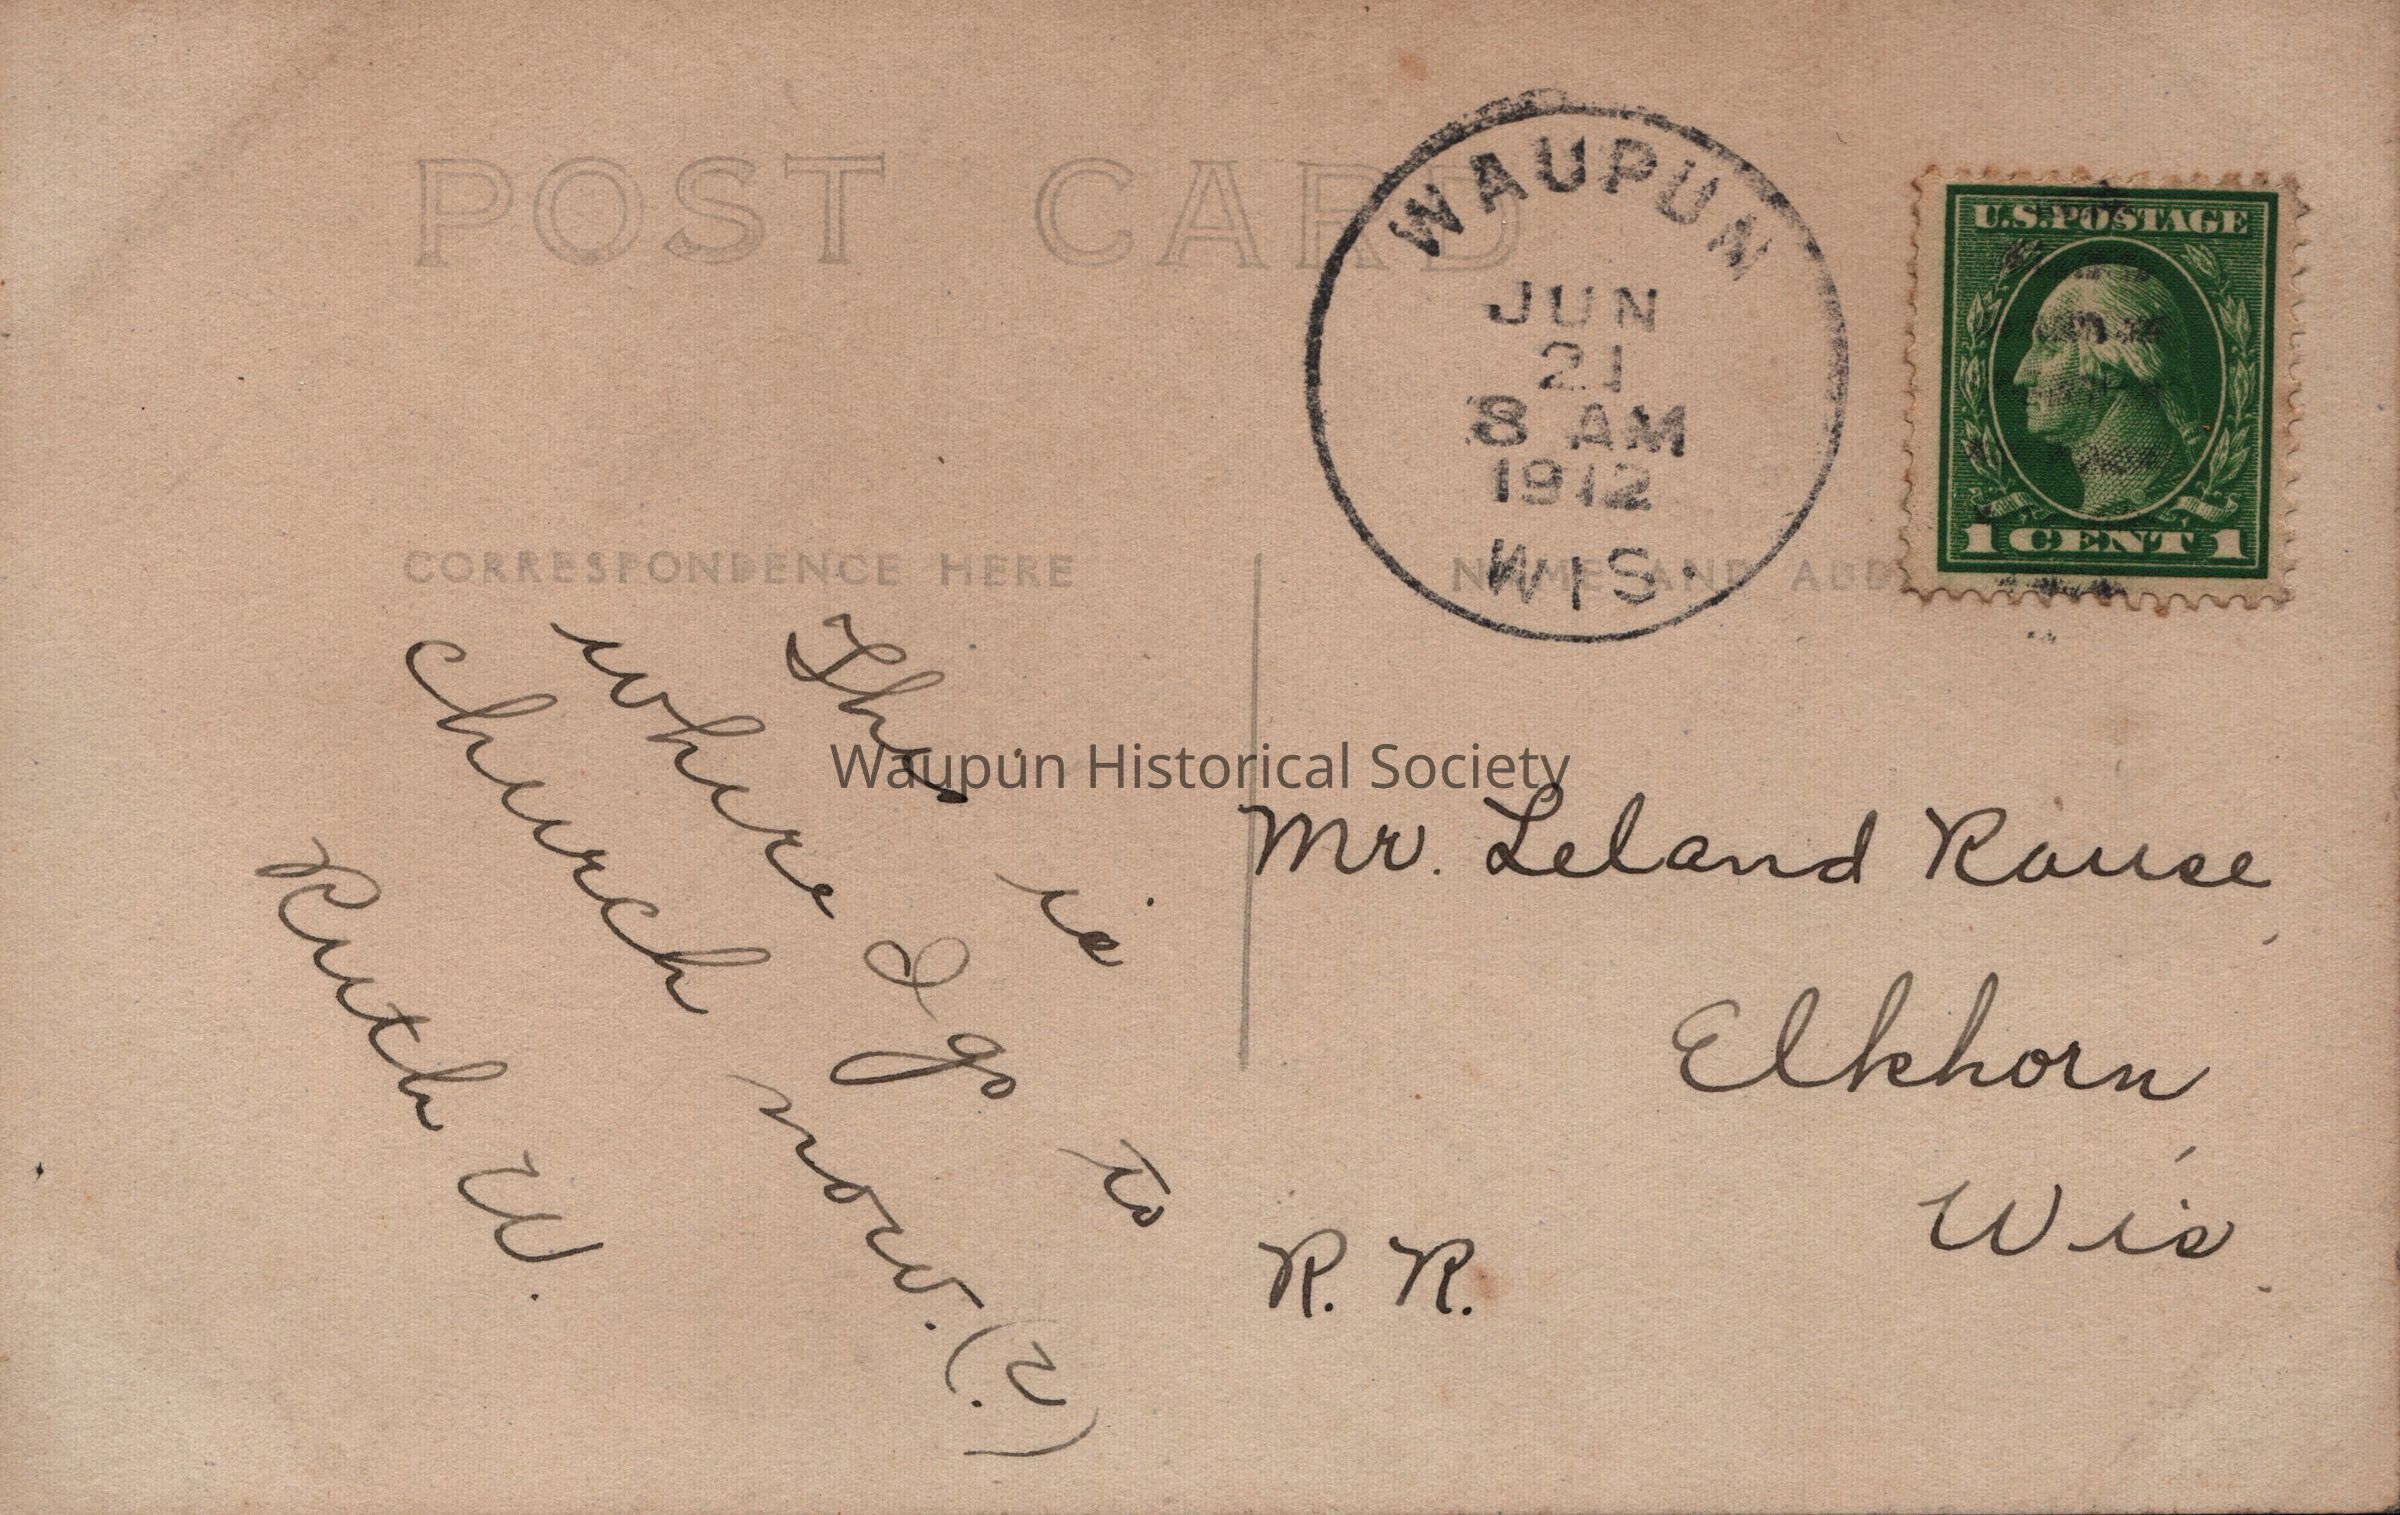 POST CARD
WAUPUN
JUN
21
8 AM
1912
WIS.
U.S. POSTAGE
1 CENT 1
CORRESPONDENCE HERE
NAME AND ADD
This is
where I go to
church now. (?)
Ruth W.
Waupun Historical Society
Mr. Leland Rouse,
Elkhorn,
Wis.
R. R.